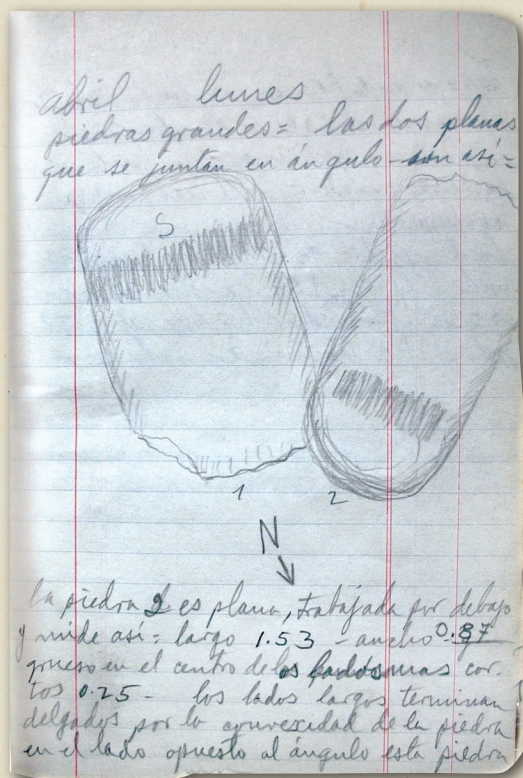 abril lunes
piedras grandes = las dos planas
que se juntan en ángulo - son así =
S
1
2
N
la piedra 2 es plana, trabajada por debajo
y mide así = largo 1.53 - ancho 0.87
grueso en el centro de los lados mas cor-
tos 0.25 - los lados largos terminan
delgados por la convexidad de la piedra
en el lado opuesto al ángulo esta piedra